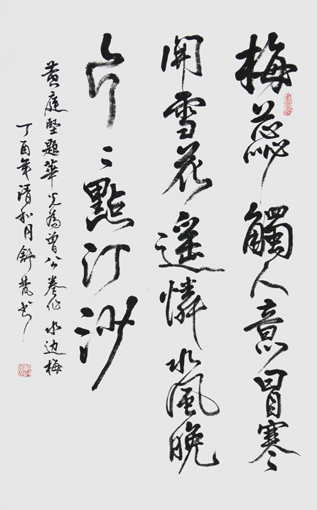 梅蕊觸人意冒寒
開雪花遥憐水風晚
片々點汀沙
黄庭堅題華光為曾公卷作水边梅
丁酉年清和月舒书